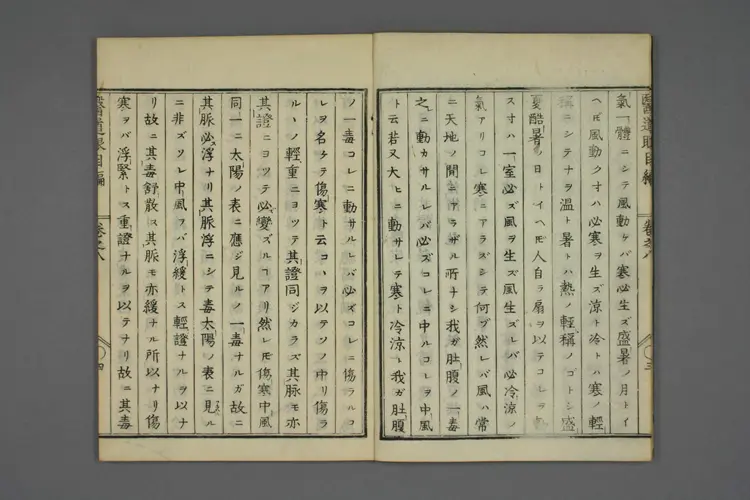 醫道眼目編 卷之八 三
氣一體ニシテ風動ケバ寒必生ズ盛暑ノ月トイ
ヘ𪜈風動クオハ必寒ヲ生ズ涼ト冷トハ寒ノ輕
稱ニシテナヲ溫ト暑トハ熱ノ輕稱ノゴトシ盛
夏酷暑ノ日トイヘ𪜈人自ラ扇ヲ以テコレヲ
ス寸ハ一室必ズ風ヲ生ズ風生ズレバ必冷涼ノ
氣アリコレ寒ニアラズシテ何ゾ然レバ風ハ常
ニ天地ノ間ニアラザル所ナシ我ガ肚腹ノ一毒
之ニ動カサルレバ必ズコレニ中ルコレヲ中風
ト云若又大ヒニ動サレテ寒ト冷涼ト我ガ肚腹
ノ一毒コレニ動サルレバ必ズコレニ傷ラルコ
レヲ名ケテ傷寒ト云コヽヲ以テソノ中リ傷ラ
ルヽノ輕重ニヨツテ其證同ジカラズ其脈モ亦
其證ニヨツテ必變ズルヿアリ然レ𪜈傷寒中風
同一ニ太陽ノ表ニ應ジ見ルノ一毒ナルガ故ニ
其脈必浮ナリ其脈浮ニシテ毒太陽ノ表ニ見ル
ニ非ズソレ中風ヲバ浮緩トス輕證ナルヲ以ナ
リ故ニ其毒舒散ス其脈モ亦緩ナル所以ナリ傷
寒ヲバ浮緊トス重證ナルヲ以テナリ故ニ其毒
醫道眼目編 卷之八 四